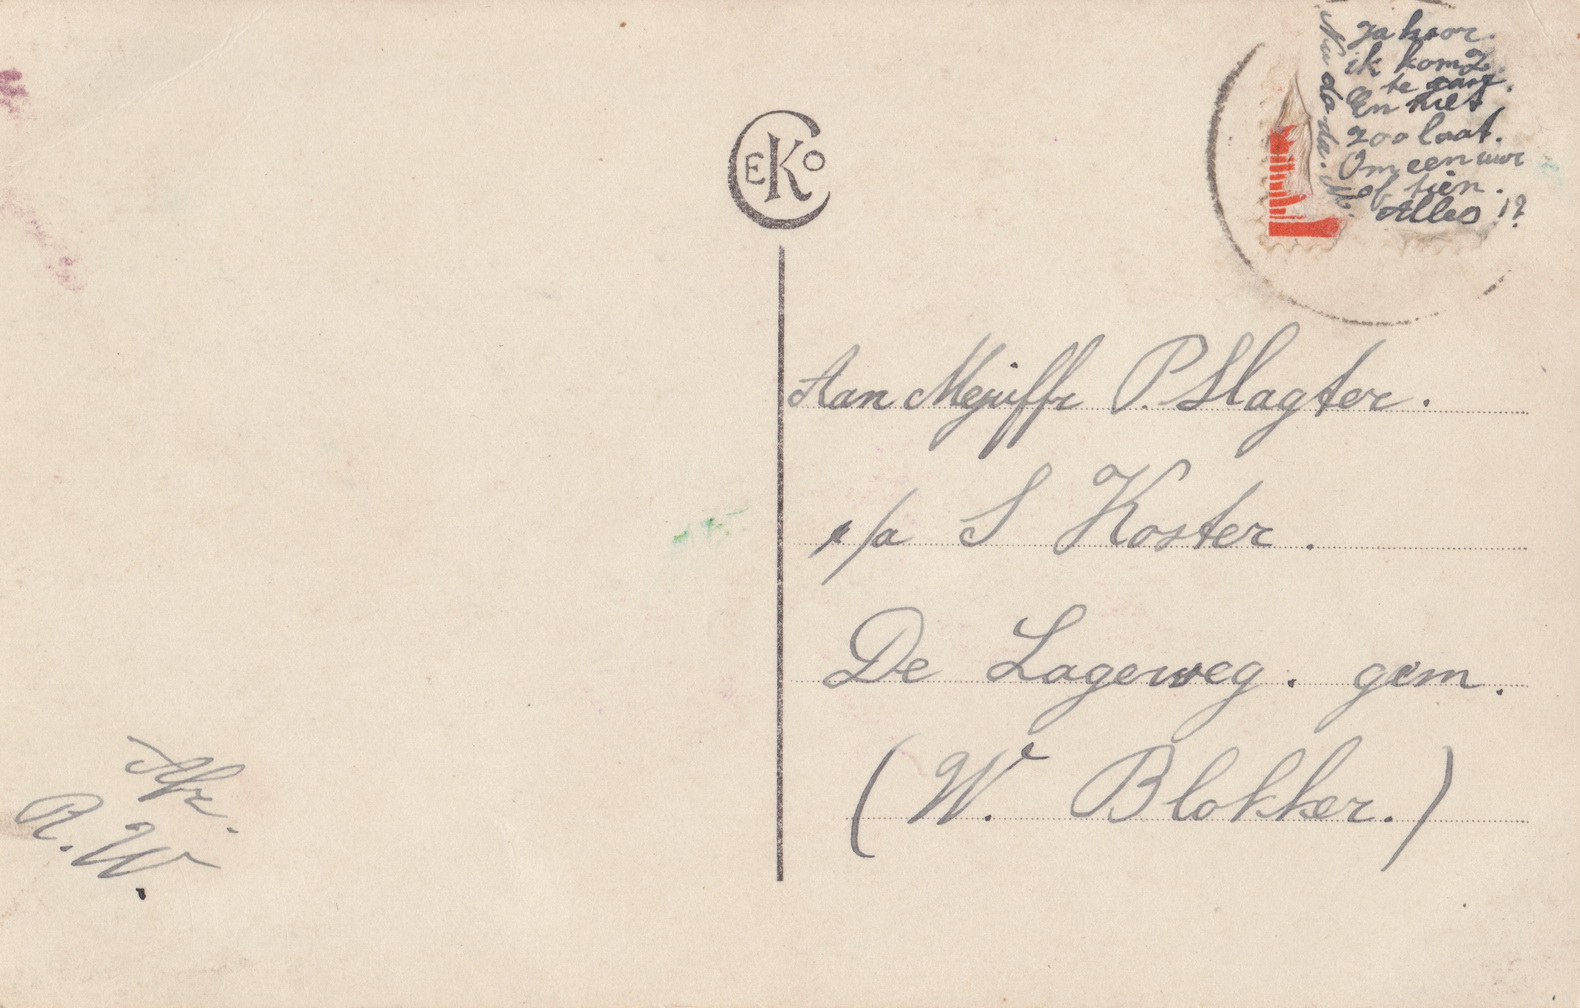 Ja hoor.
ik kom Z.
te
En niet
zoo laat.
Om een uur
of tien.
Alles !?
Nu da da. M.
CEKO
Aan Mejuffr P. Slagter.
p/a S Koster.
De Lageweg. gem.
(W. Blokker.)
Afz.
R. W.